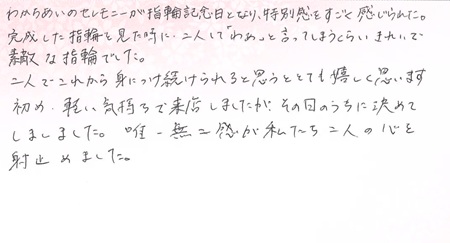 わかちあいのセレモニーが指輪記念日となり、特別感をすごく感じられた。
完成した指輪を見た時に、二人して「わぁっ」と言ってしまうくらいきれいで
素敵な指輪でした。
二人でこれから身につけ続けられると思うととても嬉しく思います
初め、軽い気持ちで来店しましたが、その日のうちに決めて
しましました。唯一無二感が私たち二人の心を
射止めました。